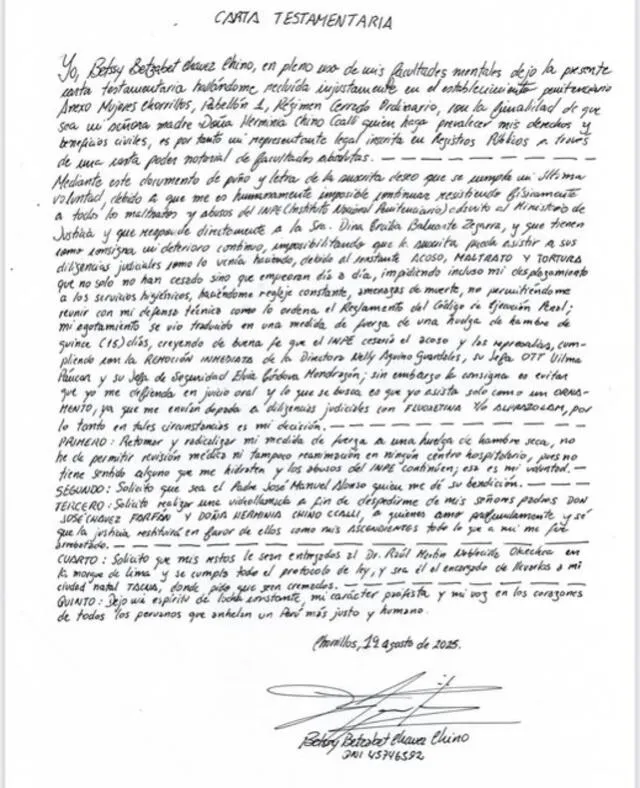 CARTA TESTAMENTARIA
Yo, Betssy Betzabet Chavez Chino, en pleno uso de mis facultades mentales dejo la presente
carta testamentaria hallándome recluida injustamente en el establecimiento penitenciario
Anexo Mujeres Chorrillos, Pabellón 1, Régimen Cerrado Ordinario, con la finalidad de que
sea mi señora madre Doña Herminia Chino Ccalli quien haga prevalecer mis derechos y
beneficios civiles, es por tanto mi representante legal inscrita en Registros Públicos a través
de una carta poder notarial de facultades absolutas.
Mediante este documento de puño y letra de la suscrita deseo que se cumpla mi última
voluntad, debido a que me es humanamente imposible continuar resistiendo físicamente
a todos los maltratos y abusos del INPE (Instituto Nacional Penitenciario) adscrito al Ministerio de
Justicia y que responde directamente a la Sra. Dina Ercilia Boluarte Zegarra, y que tienen
como consigna mi deterioro continuo, imposibilitando que la suscrita pueda asistir a sus
diligencias judiciales como lo venía haciendo, debido al constante ACOSO, MALTRATO Y TORTURA
que no solo no han cesado sino que empeoran día a día, impidiendo incluso mi desplazamiento
a los servicios higiénicos, haciéndome reglaje constante, amenazas de muerte, no permitiéndome
reunir con mi defensa técnica como lo ordena el Reglamento del Código de Ejecución Penal;
mi agotamiento se vio traducido en una medida de fuerza de una huelga de hambre de
quince (15) días, creyendo de buena fe que el INPE cesaría el acoso y las represalias, cum-
pliendo con la REMOCIÓN INMEDIATA de la Directora Nelly Aquino Guardales, su Jefa OTT Vilma
Páucar y su Jefa de Seguridad Elvia Córdova Mondragón; sin embargo la consigna es evitar
que yo me defienda en juicio oral y lo que se busca es que yo asista solo como un ORNA-
MENTO, ya que me envían dopada a diligencias judiciales con FLUOXETINA Y/O ALPRAZOLAM, por
lo tanto en tales circunstancias es mi decisión.
PRIMERO: Retomar y radicalizar mi medida de fuerza a una huelga de hambre seca, no
he de permitir revisión médica ni tampoco reanimación en ningún centro hospitalario, pues no
tiene sentido alguno que me hidraten y los abusos del INPE continúen; esa es mi voluntad.
SEGUNDO: Solicito que sea el Padre José Manuel Alonso quien me dé su bendición.
TERCERO: Solicito realizar una videollamada a fin de despedirme de mis señores padres DON
JOSÉ CHAVEZ FARFÁN Y DOÑA HERMINIA CHINO CCALLI, a quienes amo profundamente y sé
que la justicia restituirá en favor de ellos como mis ASCENDIENTES todo lo que a mí me fue
arrebatado.
CUARTO: Solicito que mis restos le sean entregados al Dr. Raúl Martín Noblecilla Olaechea en
la morgue de Lima y se cumpla todo el protocolo de ley, y sea él el encargado de llevarlos a mi
ciudad natal TACNA, donde pido que sean cremados.
QUINTO: Dejo mi espíritu de lucha constante, mi carácter profesta y mi voz en los corazones
de todos los peruanos que anhelan un Perú más justo y humano.
Chorrillos, 19 agosto de 2025.
Betssy Betzabet Chavez Chino
DNI 45746592